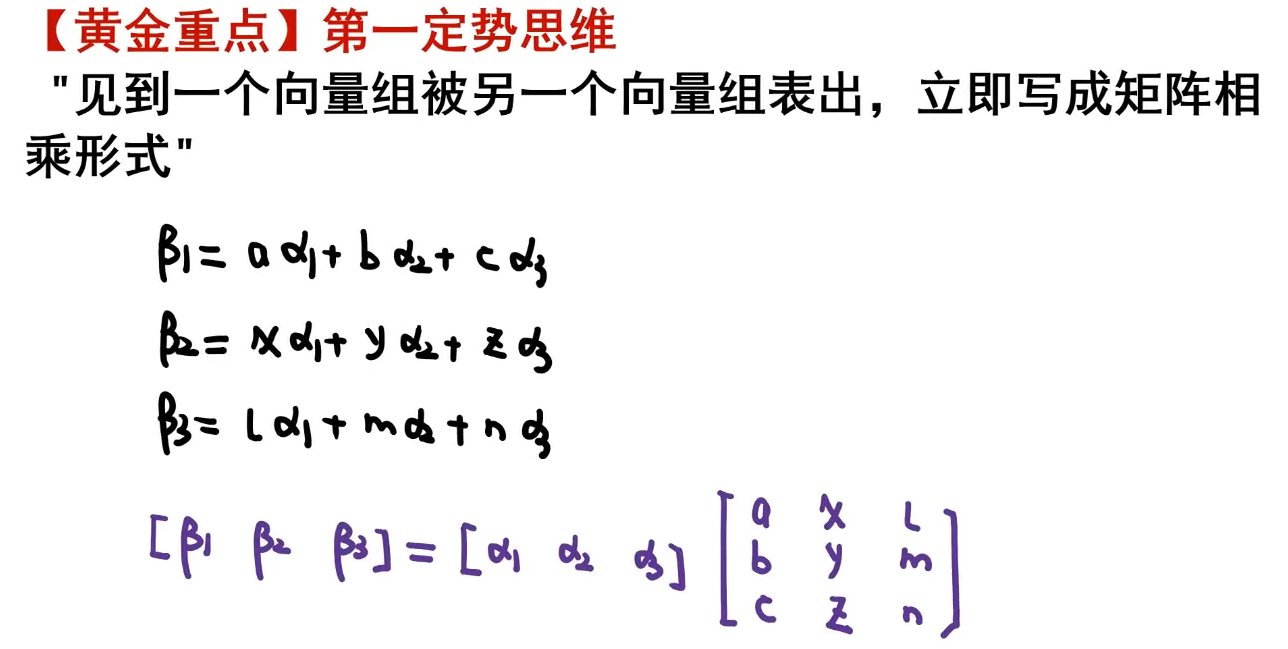 【黄金重点】第一定势思维
"见到一个向量组被另一个向量组表出，立即写成矩阵相
乘形式"
β1 = aα1 + bα2 + cα3
β2 = xα1 + yα2 + zα3
β3 = lα1 + mα2 + nα3
[β1 β2 β3] = [α1 α2 α3] [a x l
b y m
c z n]